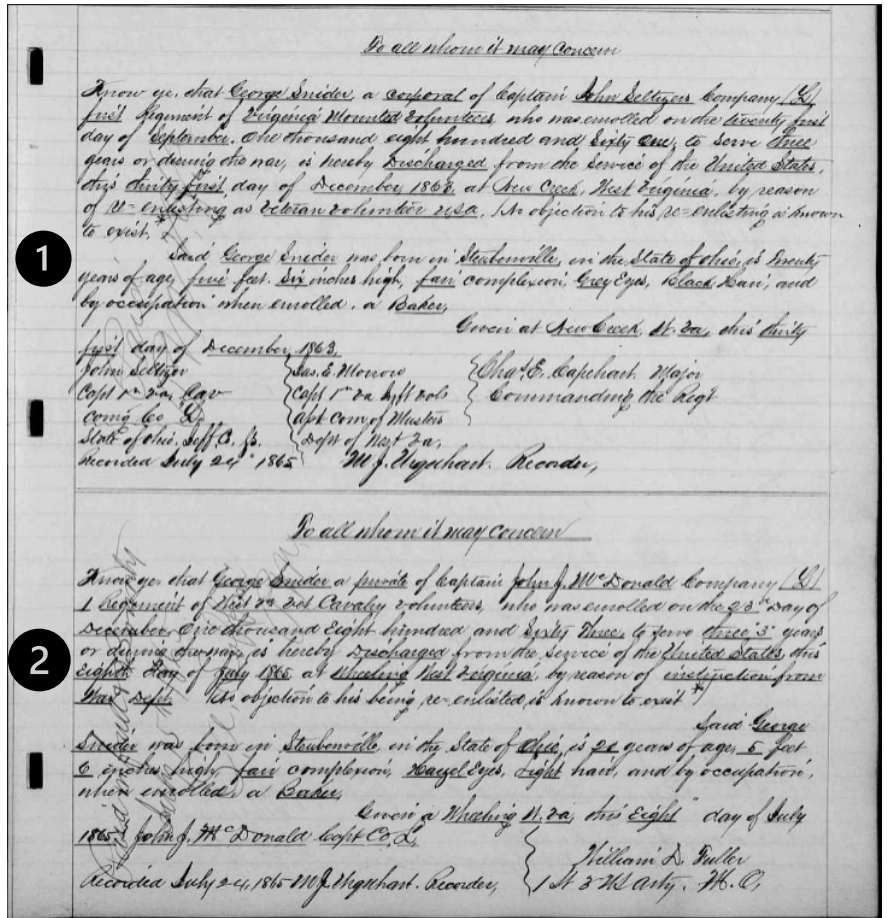 To all whom it may concern
Know ye, that George Snider, a corporal of Captain John Seltzers Company (L)
first Regiment of Virginia Mounted Volunteers, who was enrolled on the twenty first
day of September. One thousand eight hundred and Sixty One, to serve three
years or during the war, is hereby Discharged from the Service of the United States,
this thirty first day of December, 1863, at New Creek, West Virginia, by reason
of re-enlisting as veteran volunteer USA. (No objection to his re-enlisting is known
to exist.
1
Said George Snider was born in Steubenville, in the State of Ohio, is twenty
years of age, five feet. Six inches high, fair complexion, Grey Eyes, Black Hair, and
by occupation when enrolled, a Baker,
Given at New Creek, W. Va, this thirty
first day of December, 1863,
John Seltzer Jas. E. Morrow Chas. E. Capehart Major
Capt 1st Va, Cav Capt 1st Va Vols Commanding the Regt
comg Co L, Com of Musters
State of Ohio. Jeff. Co, Dept of West Va,
Recorded July 24" 1865 M J. Urquhart. Recorder,
To all whom it may concern
Know ye, that George Snider a private of Captain John J. McDonald Company (L)
1 Regiment of West Va Vet Cavalry volunteers, who was enrolled on the 23d Day of
December, One thousand Eight hundred and Sixty Three, to serve three, 3 years
or during the war, is hereby Discharged from the Service of the United States, this
2
Eighth day of July 1865, at Wheeling West Virginia, by reason of instruction from
War Dept No objection to his being re-enlisted is known to exist *)
Said George
Snider was born in Steubenville, in the State of Ohio, is years of age, 5 feet
6 inches high, fair complexion, Hazel Eyes, light hair, and by occupation,
when enrolled, a Baker,
Given a Wheeling W. Va, this Eight" day of July
1865, John J. McDonald Capt Co, L,
William D. Fuller
Recorded July 24, 1865 M J Urquhart. Recorder, 1 Lt 3 US Arty. M. O,